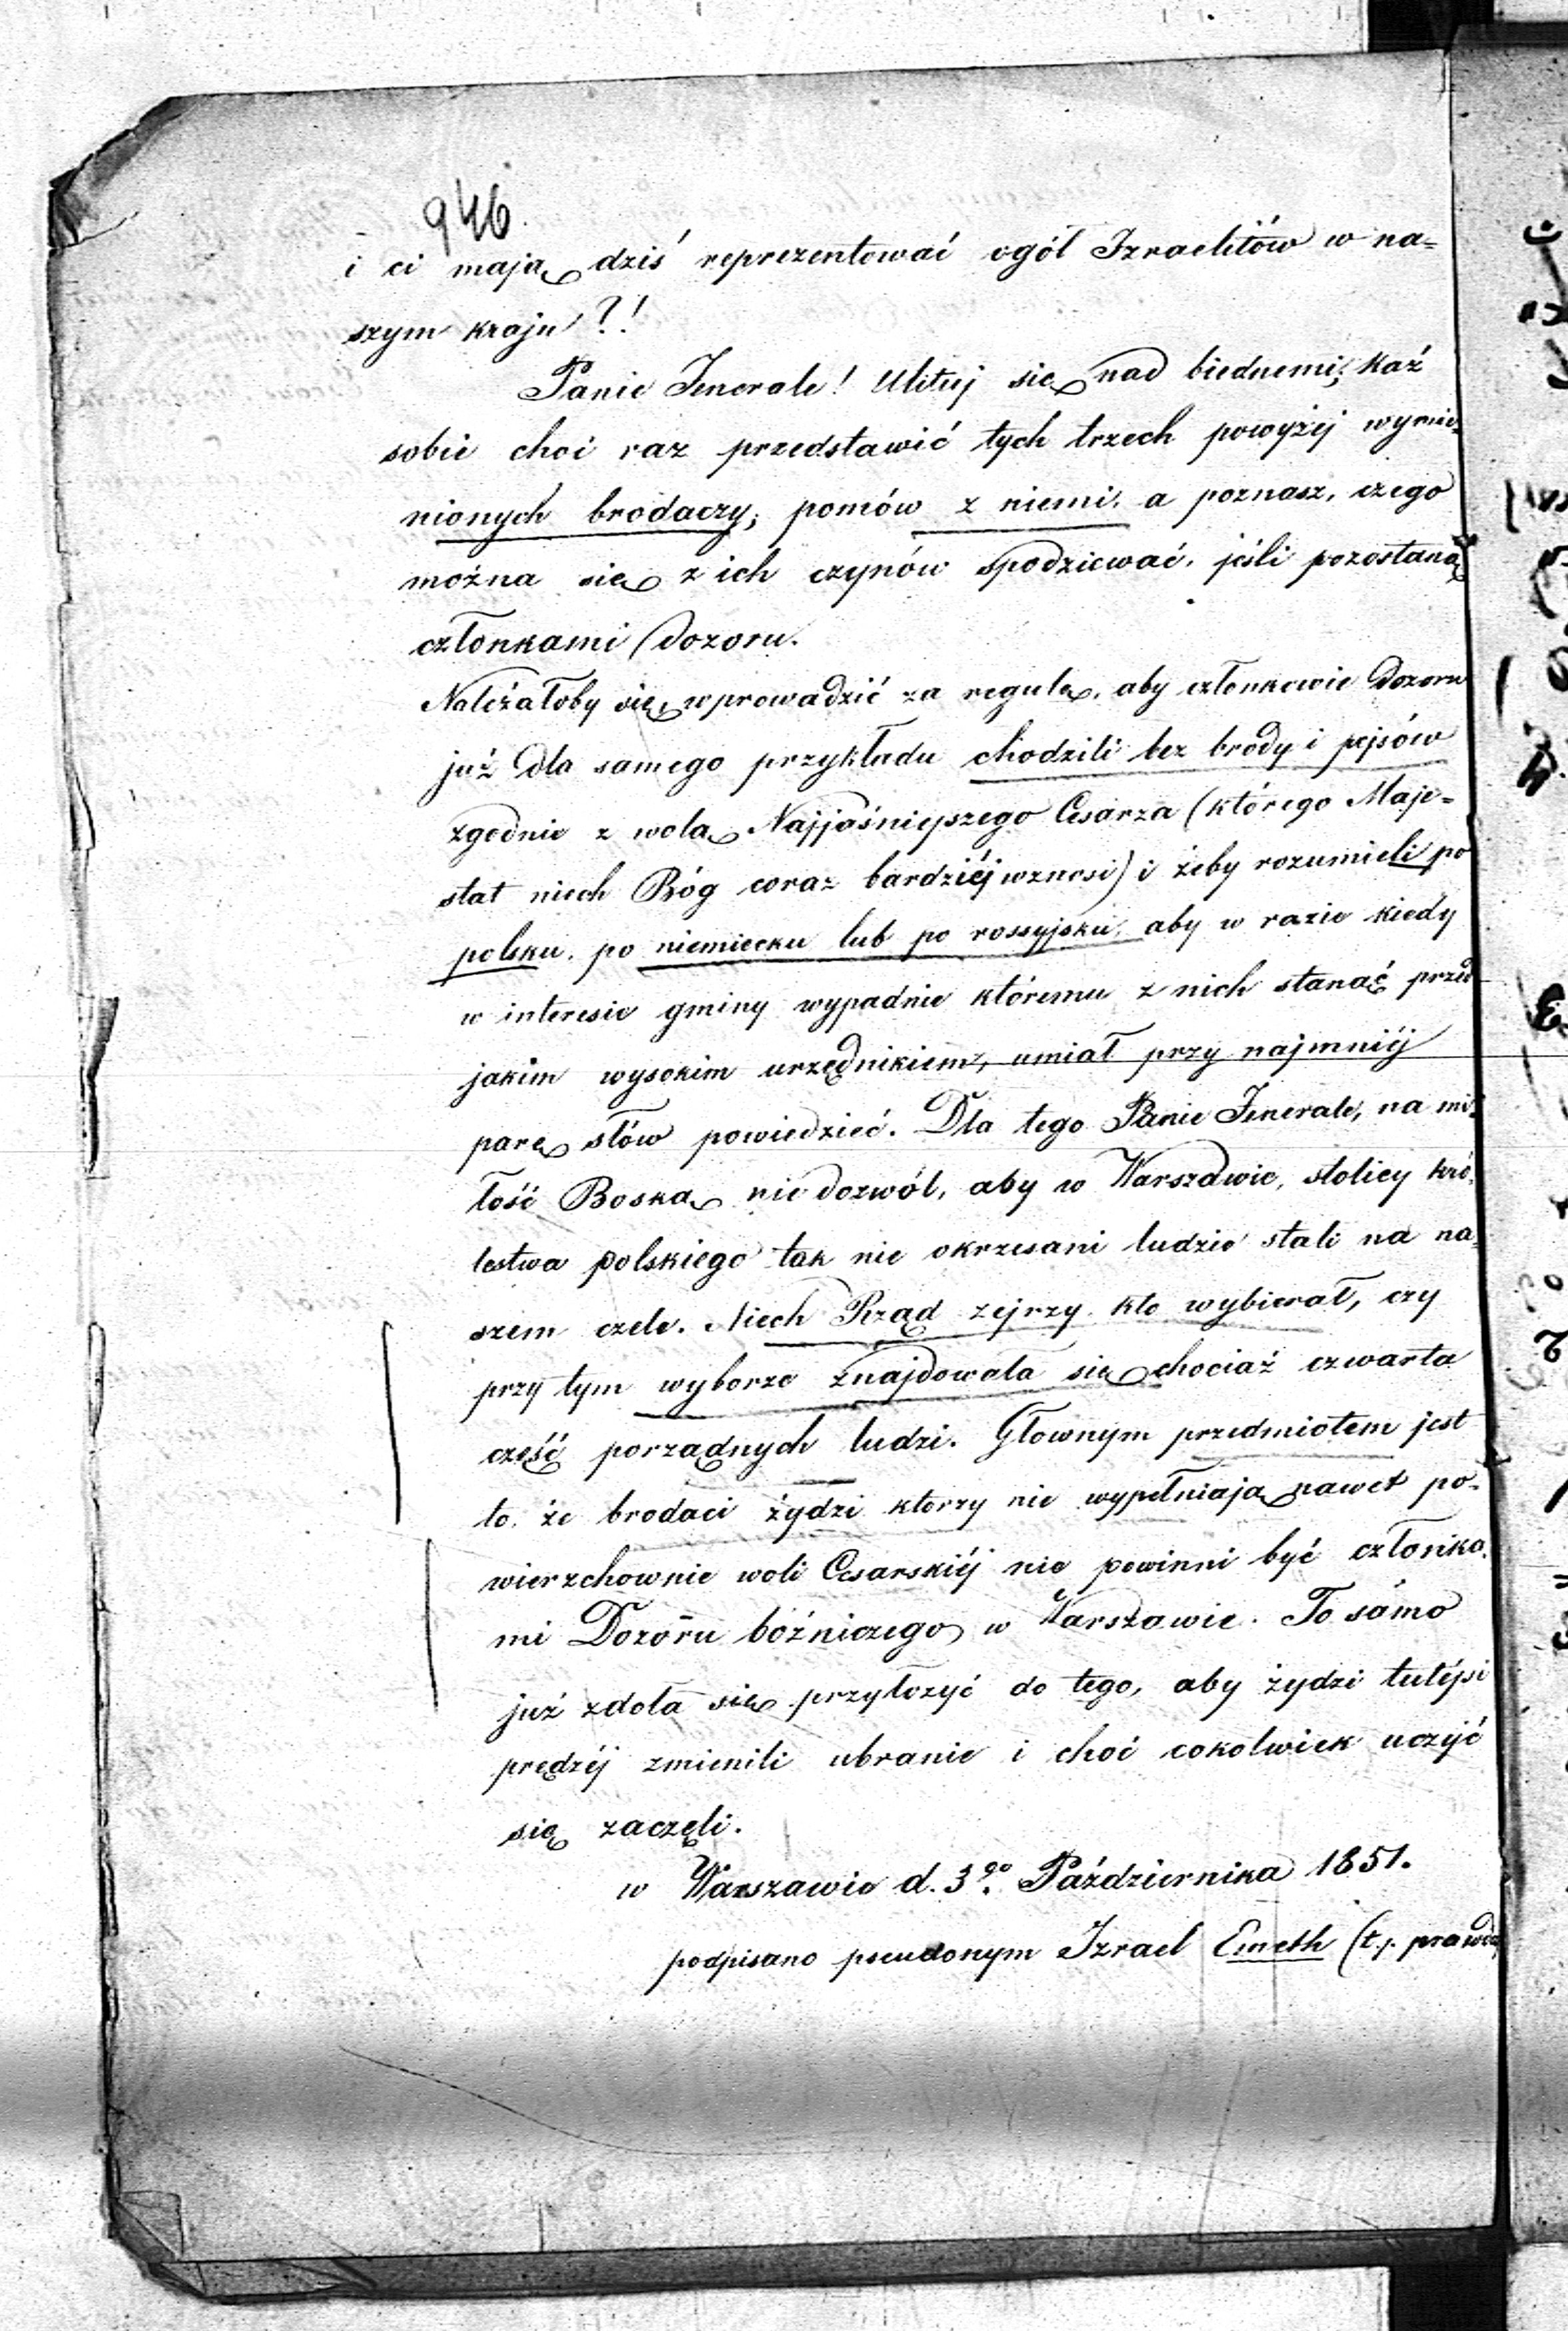 946.
i ci mają dziś reprezentować ogół Izraelitów w na=
szym kraju?!
Panie Jenerale! Ulituj się nad biednemi; każ
sobie choć raz przedstawić tych trzech powyżej wymie=
nionych brodaczy; pomów z niemi, a poznasz, czego
można się z ich czynów spodziewać, jeśli pozostaną
członkami Dozoru.
Należałoby się wprowadzić za regułę, aby członkowie Dozoru
już dla samego przykładu chodzili bez brody i pejsów
zgodnie z wolą Najjaśniejszego Cesarza (którego Maje=
stat niech Bóg coraz bardziéj wznosi) i żeby rozumieli po
polsku, po niemiecku lub po rossyjsku, aby w razie kiedy
w interesie gminy wypadnie któremu z nich stanąć przed
jakim wysokim urzędnikiem, umiał przy najmniéj
parę słów powiedzieć. Dla tego Panie Jenerale, na mi=
łość Boską nie dozwól, aby w Warszawie, stolicy kró=
lestwa polskiego tak nie okrzesani ludzie stali na na=
szem czele. Niech Rząd zejrzy kto wybierał, czy
przy tym wyborze znajdowała się chociaż czwarta
część porządnych ludzi. Głownym przedmiotem jest
to, że brodaci żydzi ktorzy nie wypełniają nawet po=
wierzchownie woli Cesarskiéj nie powinni być członka=
mi Dozoru bóźniczego w Warszawie. To samo
już zdoła się przyłożyć do tego, aby żydzi tutéjsi
prędzéj zmienili ubranie i choć cokolwiek uczyć
się zaczęli.
w Warszawie d. 3go Października 1851.
podpisano pseudonym Izrael Emeth (t.j. prawda